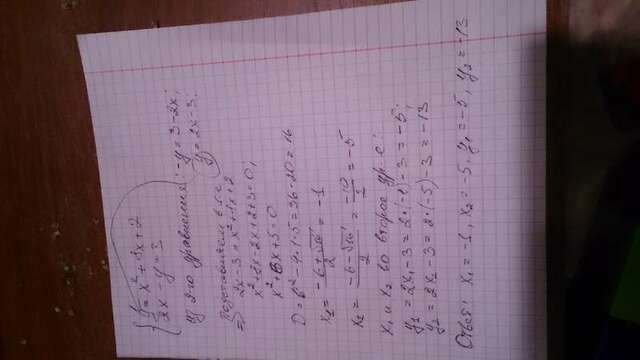 y = x² + 8x + 2
2x - y = 3
из 2-го уравнения: -y = 3 - 2x;
y = 2x - 3.
Подставляем в 1-е
=> 2x - 3 = x² + 8x + 2
x² + 8x - 2x + 2 + 3 = 0;
x² + 6x + 5 = 0
D = 6² - 4·1·5 = 36 - 20 = 16
x₁ = (-6 + √16)/2 = -1
x₂ = (-6 - √16)/2 = -10/2 = -5
x₁ и x₂ во второе ур-е:
y₁ = 2x₁ - 3 = 2·(-1) - 3 = -5;
y₂ = 2x₂ - 3 = 2·(-5) - 3 = -13
Ответ: x₁ = -1, x₂ = -5, y₁ = -5, y₂ = -13